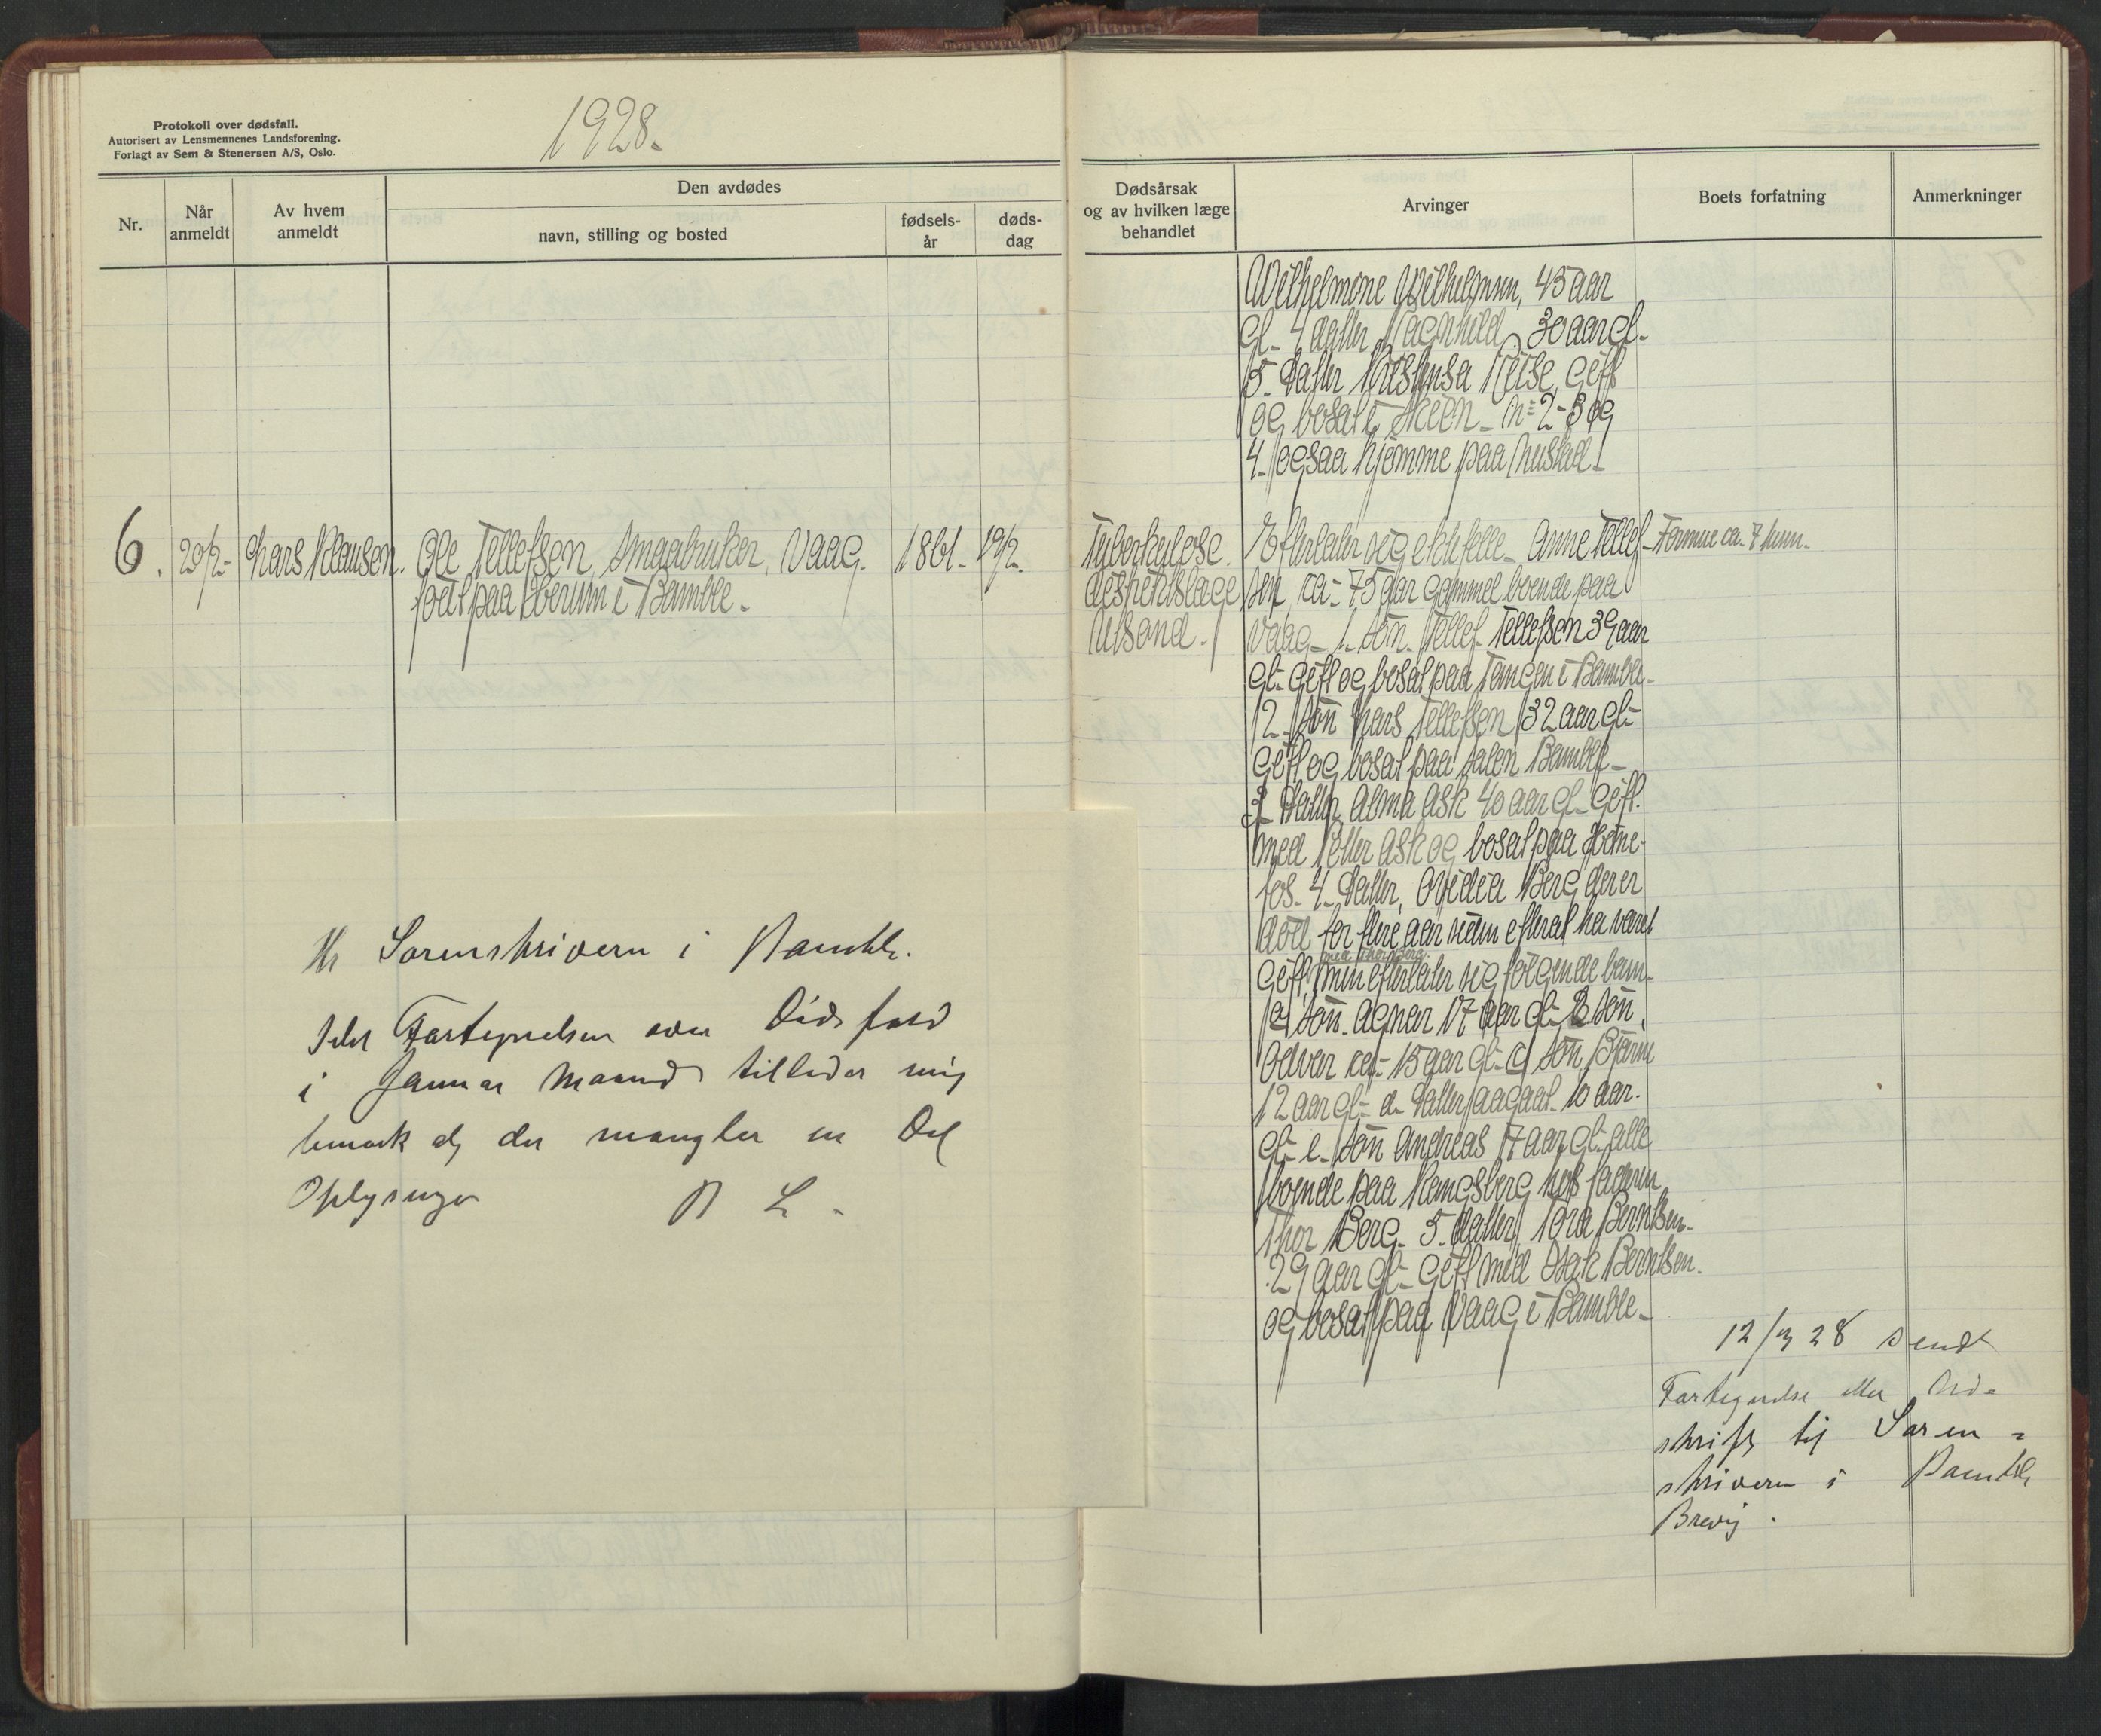 Protokoll over dødsfall.
Autorisert av Lensmennenes Landsforening.
Forlagt av Sem & Stenersen A/S, Oslo.
1928.
Nr.
Når anmeldt
Av hvem anmeldt
Den avdødes
navn, stilling og bosted
fødsels-år
døds-dag
Dødsårsak og av hvilken læge behandlet
Arvinger
Boets forfatning
Anmerkninger
Wilhelmine Wilhelmsen, 45 aar
gl- 4 datter Ragnhild 30 aar gl-
5. datter Kristensa Reise, gift
og bosat i Skien - n= 2-3 og
4. ogsaa hjemme paa
6. 20/2- Lars Klausen. Ole Tellefsen, Smaabruker, Vaag. 1861. 19/2.
født paa i Bamble.
Tuberkulose.
distriktslæge
Ursand.
Efterlater sig ektefelle - Anne Tellef-
sen, ca- 75 aar gammel boende paa
Vaag - 1. søn. Tellef Tellefsen 39 aar
gl- gift og bosat paa Tangen i Bamble-
2. søn Lars Tellefsen 32 aar gl-
gift og bosat paa Salen Bamble-
3- datter Alma Ask 40 aar gl- gift.
med Peller Ask og bosat paa Høne-
fos. 4. datter, Ovidia Berg der er
død for flere aar siden efterat ha været
med Thor Berg.
gift, men efterlater sig følgende barn-
a, søn- Agnar 17 aar gl- B søn,
Odvar ca- 15 aar gl- c, søn Bjarne
12 aar gl- d- datter Aagaat 10 aar.
gl- e- søn Andreas 7 aar gl- alle
boende paa Kongsberg hos faderen
Thor Berg. 5. datter Tora Berntsen-
29 aar gl- gift med Isak Berntsen.
og bosat paa Vaag i Bamble-
Formue ca. 7 hun.
Hr Sorenskriveren i Bamble.
Ifølt Fortegnelsen over Dødsfald
i Januar Maaned tillader mig
bemerk at der mangler en Del
Oplysninger B L.
12/3 28 sendt
Fortegnelse eller Ud-
skrift til Soren=
skriveren i Bamble
Brevig.